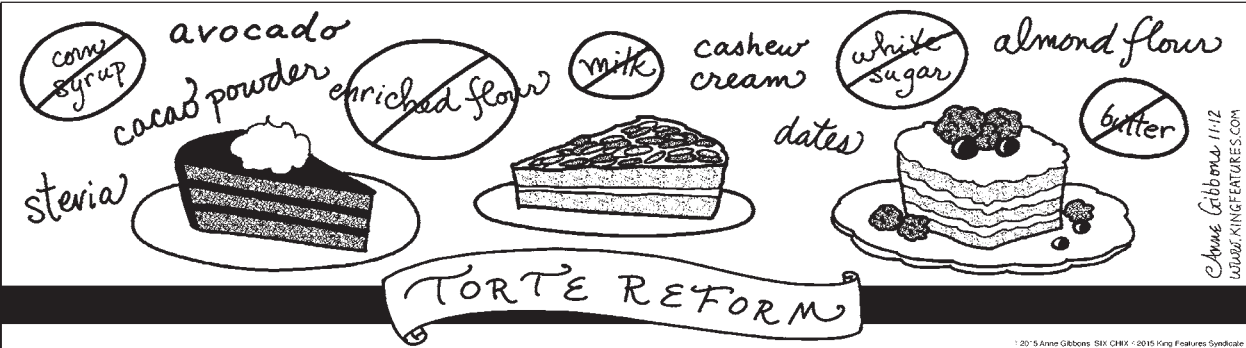 corn
syrup
avocado
cacao powder
enriched flour
milk
cashew
cream
white
sugar
almond flour
butter
stevia
dates
TORTE REFORM
Anne Gibbons 11·12
WWW.KINGFEATURES.COM
©2015 Anne Gibbons SIX CHIX ©2015 King Features Syndicate